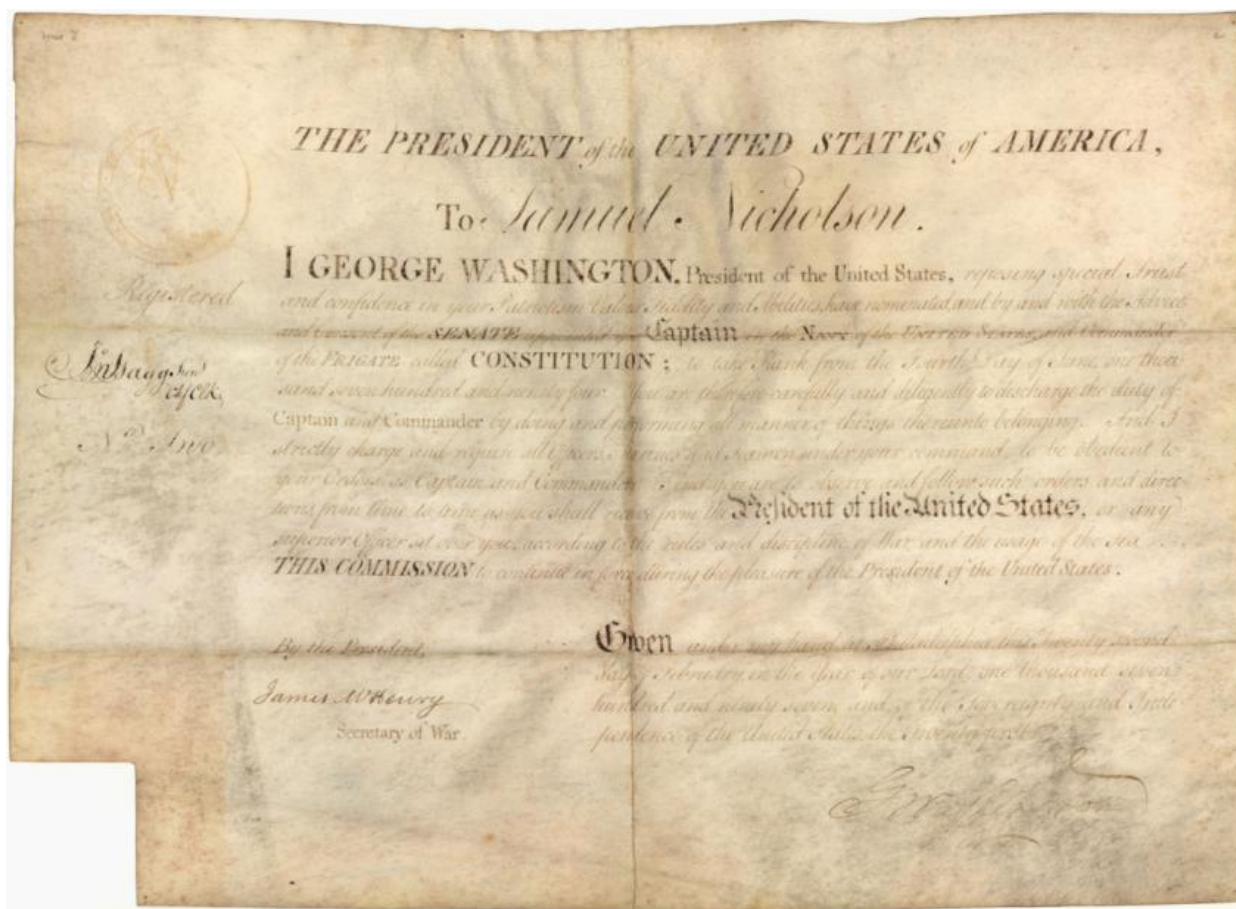 THE PRESIDENT of the UNITED STATES of AMERICA,
To Samuel Nicholson.
I GEORGE WASHINGTON, President of the United States, reposing special Trust
and confidence in your Patriotism Valour Fidelity and Abilities, have nominated, and by and with the Advice
and Consent of the SENATE appointed you Captain in the Navy of the UNITED STATES, and Commander
of the FRIGATE called CONSTITUTION; to take Rank from the Fourth Day of June, one thou
sand seven hundred and ninety four. You are therefore carefully and diligently to discharge the duty of
Captain and Commander by doing and performing all manner of things thereunto belonging. And I
strictly charge and require all Officers, Marines and Seamen under your command, to be obedient to
your Orders as Captain and Commander. And you are to observe and follow such orders and direc
tions from time to time as you shall receive from the President of the United States, or any
superior Officer set over you, according to the rules and discipline of War, and the usage of the Sea
THIS COMMISSION to continue in force during the pleasure of the President of the United States.
Registered
No. Two
Given under my hand at Philadelphia this twenty second
Day of February, in the Year of our Lord, one thousand seven
hundred and ninety seven, and of the Sovereignty and Inde
pendence of the United States the twenty first
By the President,
James McHenry
Secretary of War.